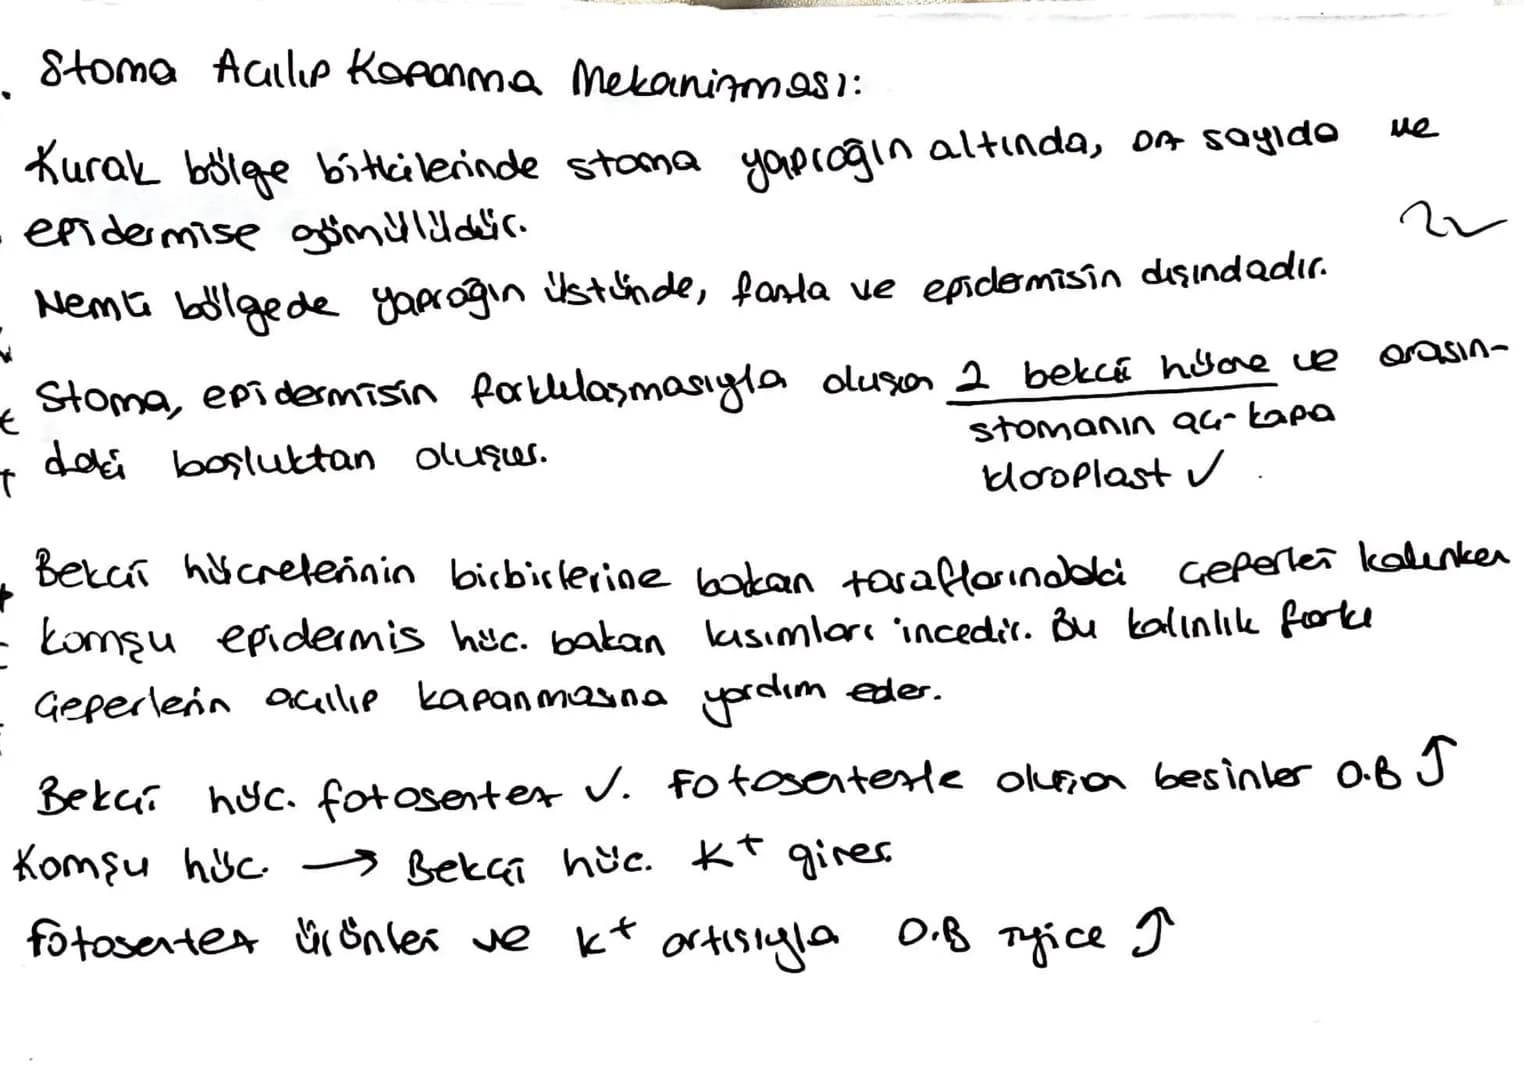 Stoma Açılıp Kapanma Mekanizması:
Kurak bölge bitkilerinde stoma yaprağın altında, az sayıda ve
epidermise gömülüdür.
Nemli bölgede yaprağın üstünde, fazla ve epidermisin dışındadır.
Stoma, epidermisin farklılaşmasıyla oluşan 2 bekçi hücre ve arasın-
daki boşluktan oluşur.
stomanın aç-kapa
kloroplast ✓
Bekçi hücrelerinin birbirlerine bakan taraflarındaki çeperleri kalınken
komşu epidermis hüc. bakan kısımları incedir. Bu kalınlık farkı
Çeperlerin açılıp kapanmasına yardım eder.
Bekçi hüc. fotosentez ✓. Fotosentezle oluşan besinler O.B ↑
Komşu hüc. → Bekçi hüc. K+ girer.
fotosentez ürünleri ve K+ artısıyla O.B iyice ↑